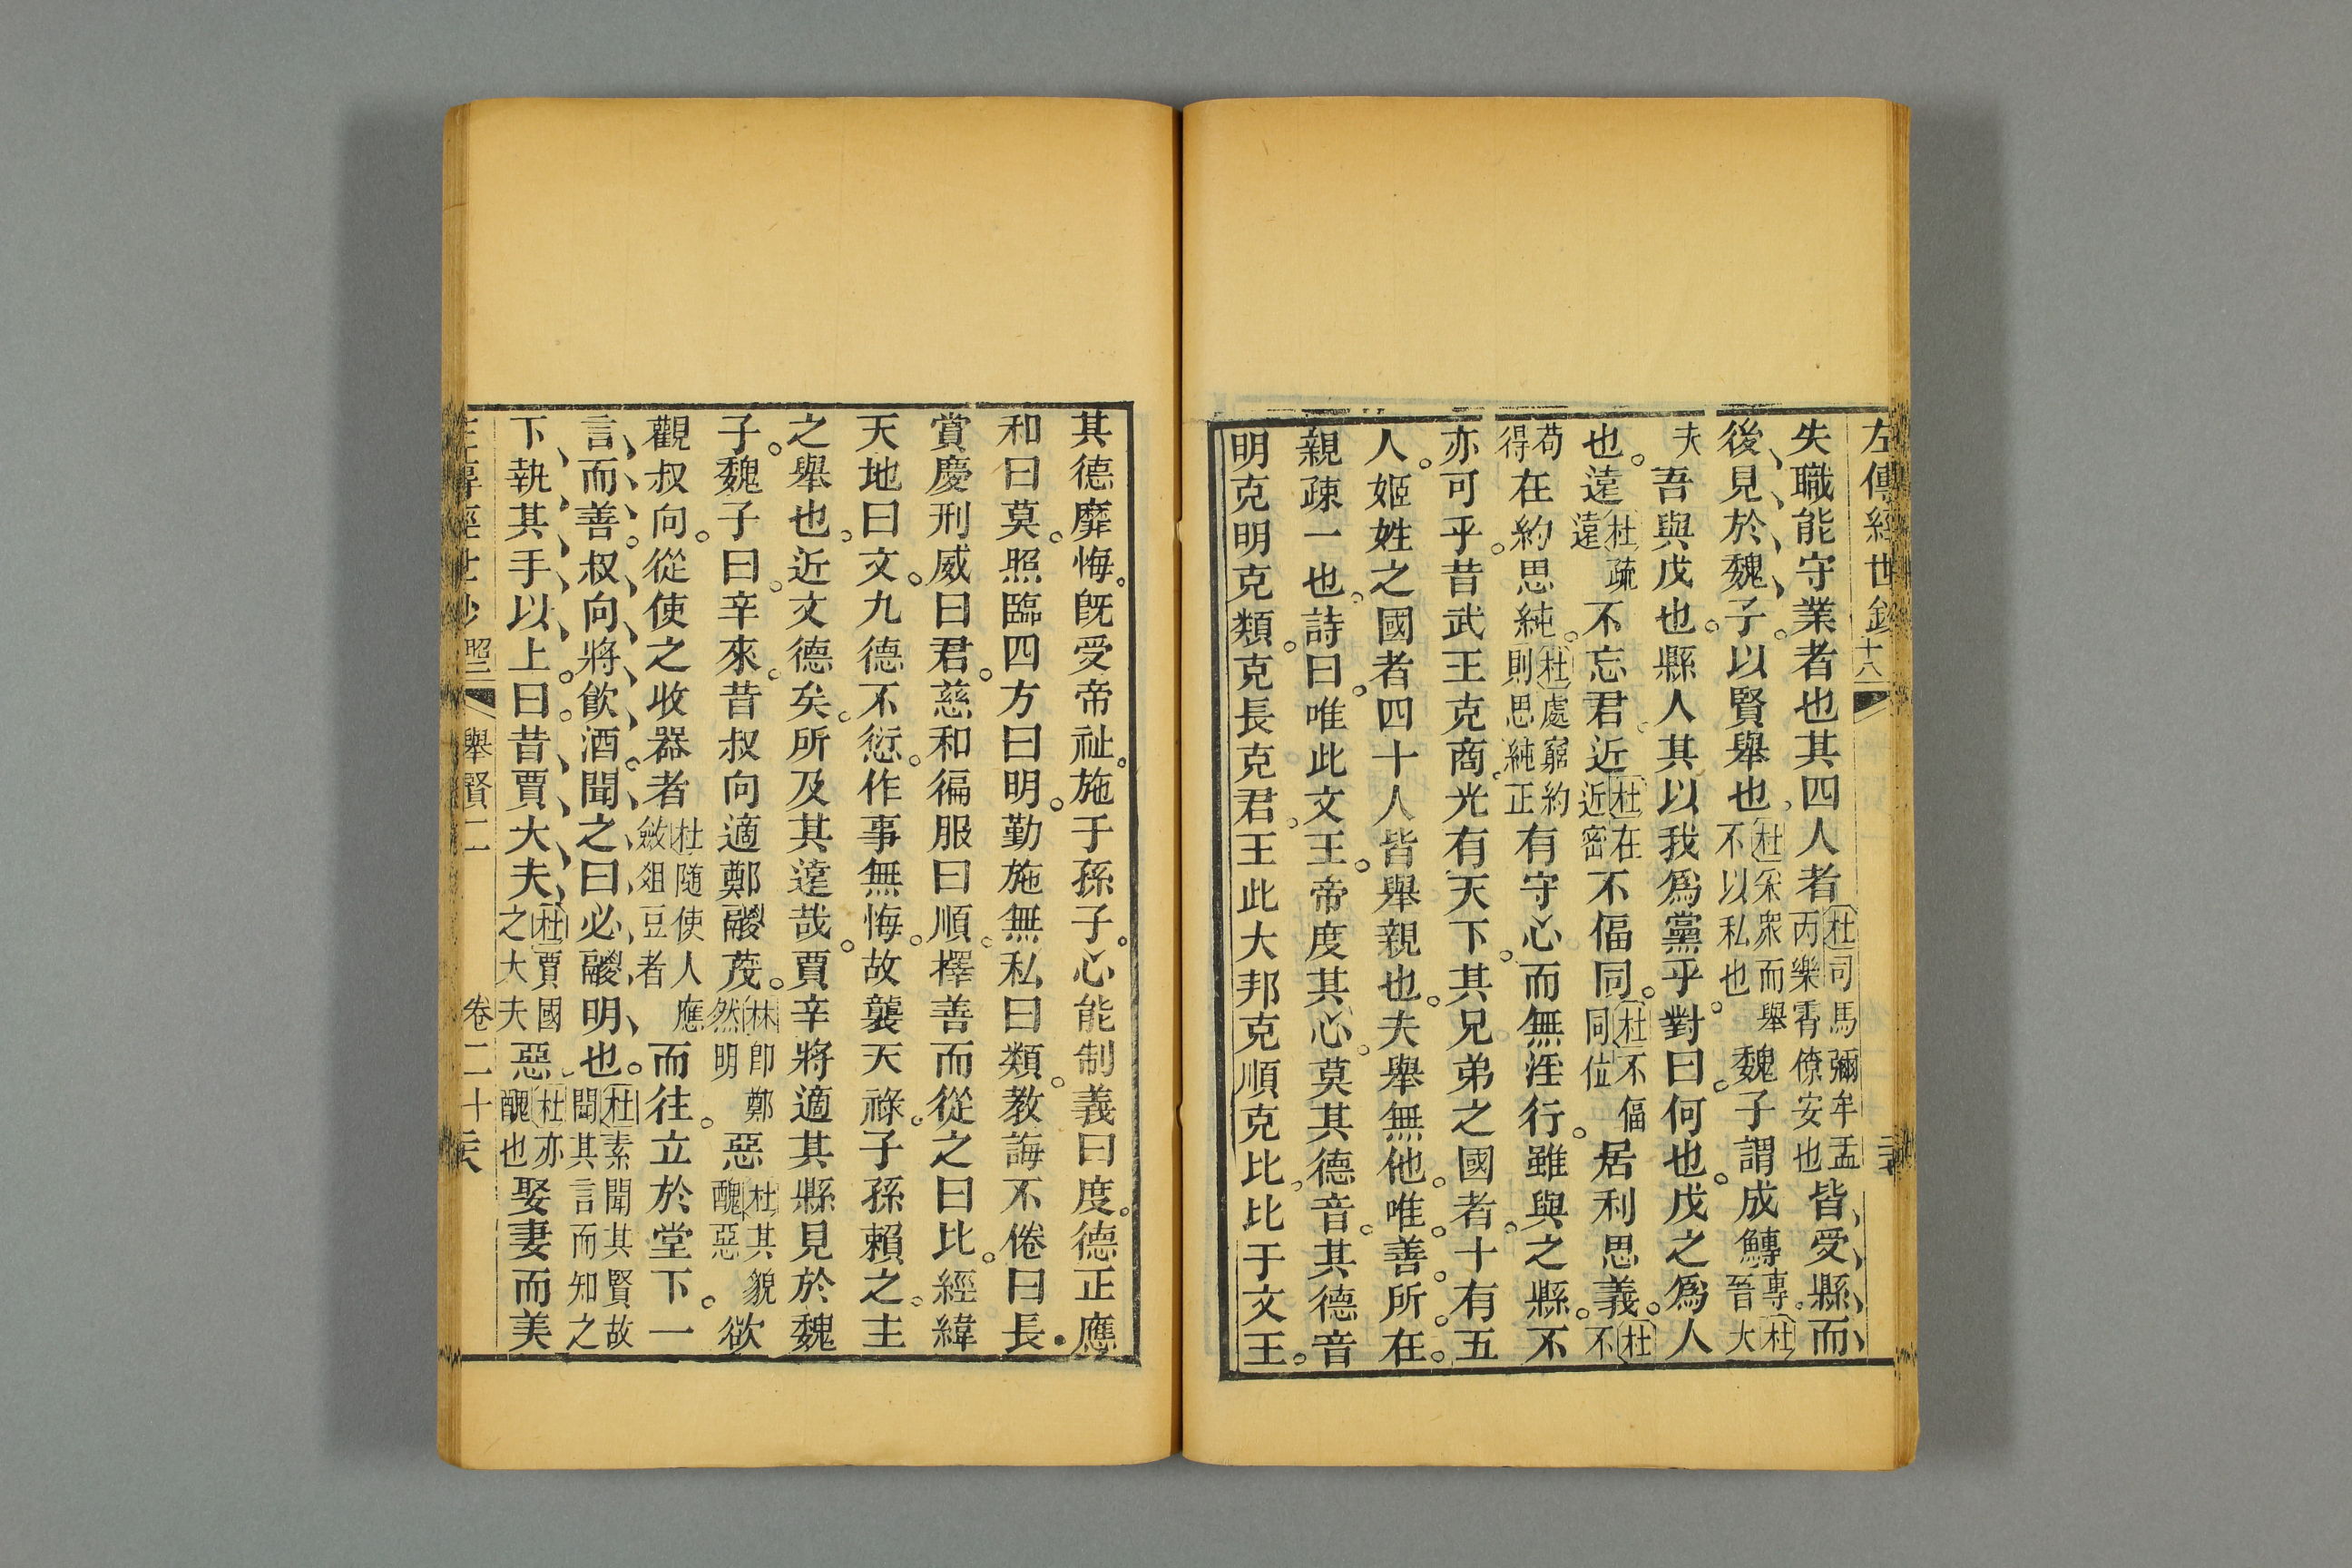 左傳經世鈔十八
失職能守業者也其四人者杜司馬彌牟孟丙樂霄僚安也皆受縣而
後見於魏子以賢舉也杜采衆而舉不以私也魏子謂成鱄專杜晉大
夫吾與戊也縣人其以我爲黨乎對曰何也戊之爲人
也遠杜疏遠不忘君近杜在近密不偪同杜不偪同位居利思義杜不
苟得在約思純杜處窮約則思純正有守心而無淫行雖與之縣不
亦可乎昔武王克商光有天下其兄弟之國者十有五
人姬姓之國者四十人皆舉親也夫舉無他唯善所在
親疎一也詩曰唯此文王帝度其心莫其德音其德音
明克明克類克長克君王此大邦克順克比比于文王
其德靡悔旣受帝祉施于孫子心能制義曰度德正應
和曰莫照臨四方曰明勤施無私曰類教誨不倦曰長
賞慶刑威曰君慈和徧服曰順擇善而從之曰比經緯
天地曰文九德不愆作事無悔故襲天祿子孫賴之主
之舉也近文德矣所及其遠哉賈辛將適其縣見於魏
子魏子曰辛來昔叔向適鄭鬷茂林卽鄭然明惡杜其貌醜惡欲
觀叔向從使之收器者杜隨使人應斂俎豆者而往立於堂下一
言而善叔向將飮酒聞之曰必鬷明也杜素聞其賢故聞其言而知之
下執其手以上曰昔賈大夫杜賈國之大夫惡杜亦醜也娶妻而美
舉賢二 卷二十